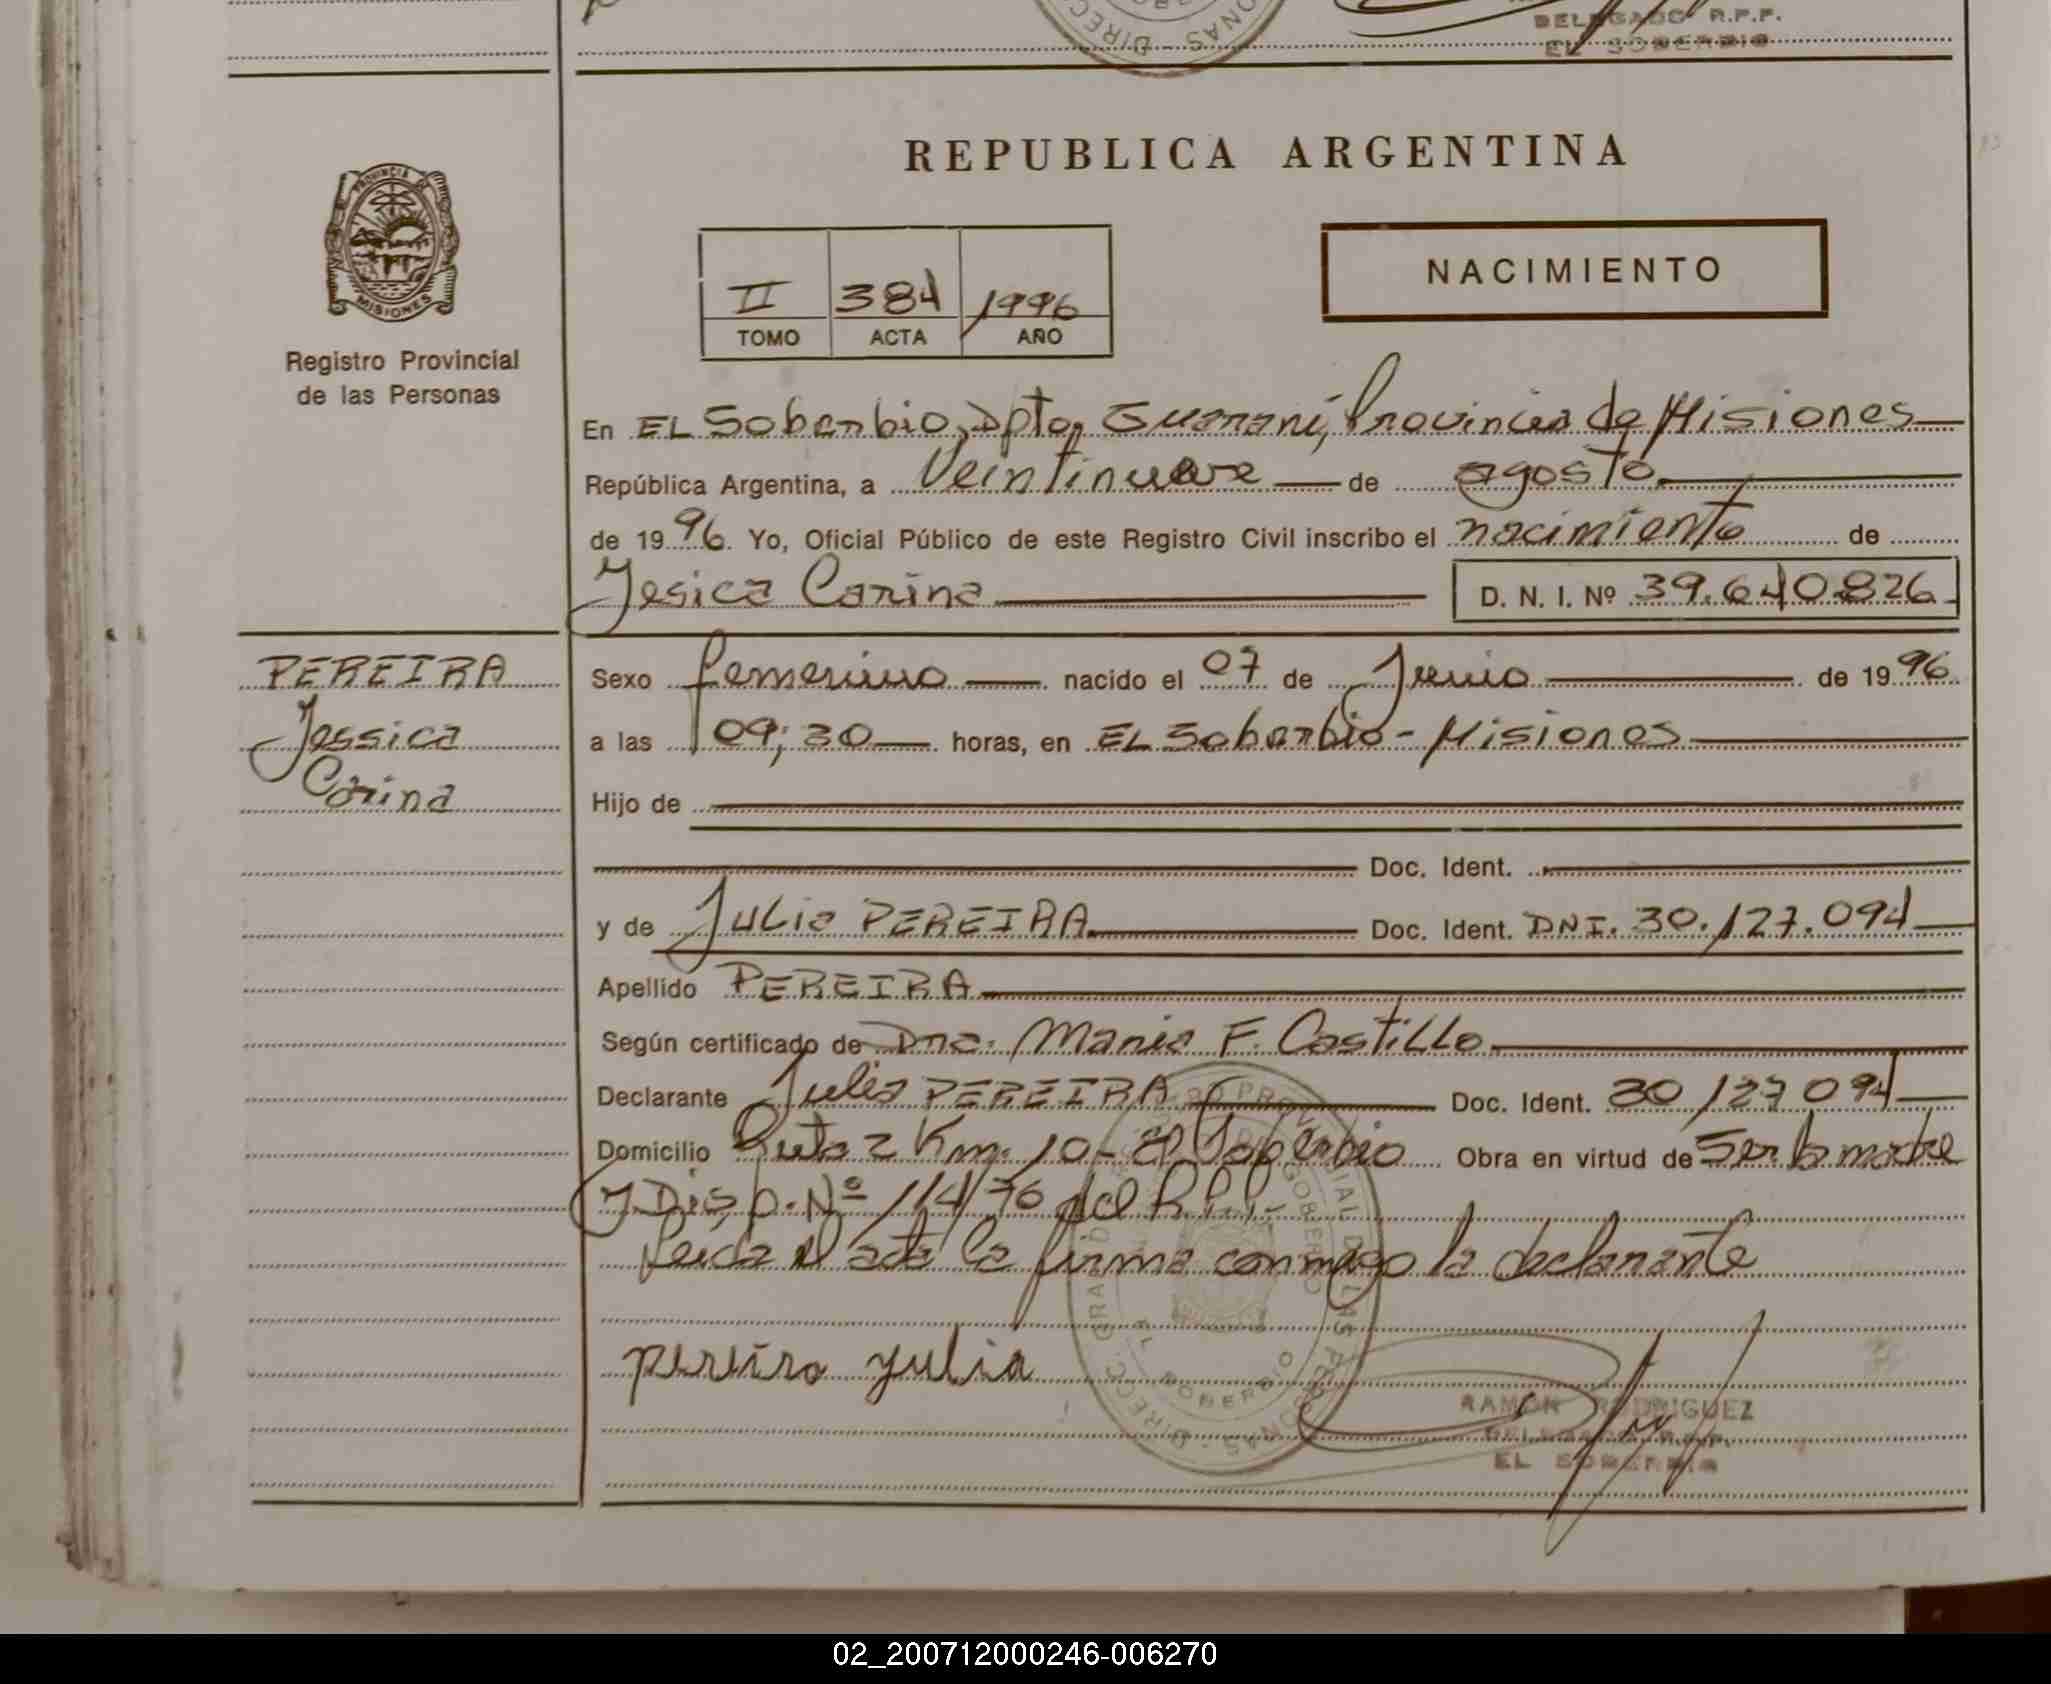 DELEGADO R.P.P.
EL SOBERBIO
REPUBLICA ARGENTINA
PROVINCIA DE
MISIONES
Registro Provincial
de las Personas
II 384 1996
TOMO ACTA AÑO
NACIMIENTO
En EL Soberbio, Dpto. Guaraní, Provincia de Misiones
República Argentina, a Veintinueve de agosto
de 1996. Yo, Oficial Público de este Registro Civil inscribo el nacimiento de
Jesica Carina D. N. I. Nº 39.640.826
PEREIRA
Jessica
Carina
Sexo femenino nacido el 07 de Junio de 1996
a las 09:30 horas, en EL Soberbio - Misiones
Hijo de
Doc. Ident.
y de Julia PEREIRA Doc. Ident. DNI. 30.127.094
Apellido PEREIRA
Según certificado de Dra. Maria F. Castillo
Declarante Julia PEREIRA Doc. Ident. 30 127 094
Domicilio Ruta 2 Km. 10 - El Soberbio Obra en virtud de Ser la madre
y Disp. Nº 114/76 del R.P.P.
Leída el acta la firma conmigo la declarante
pereira yulia
RAMON RODRIGUEZ
DELEGADO R.P.P.
EL SOBERBIO
02_200712000246-006270